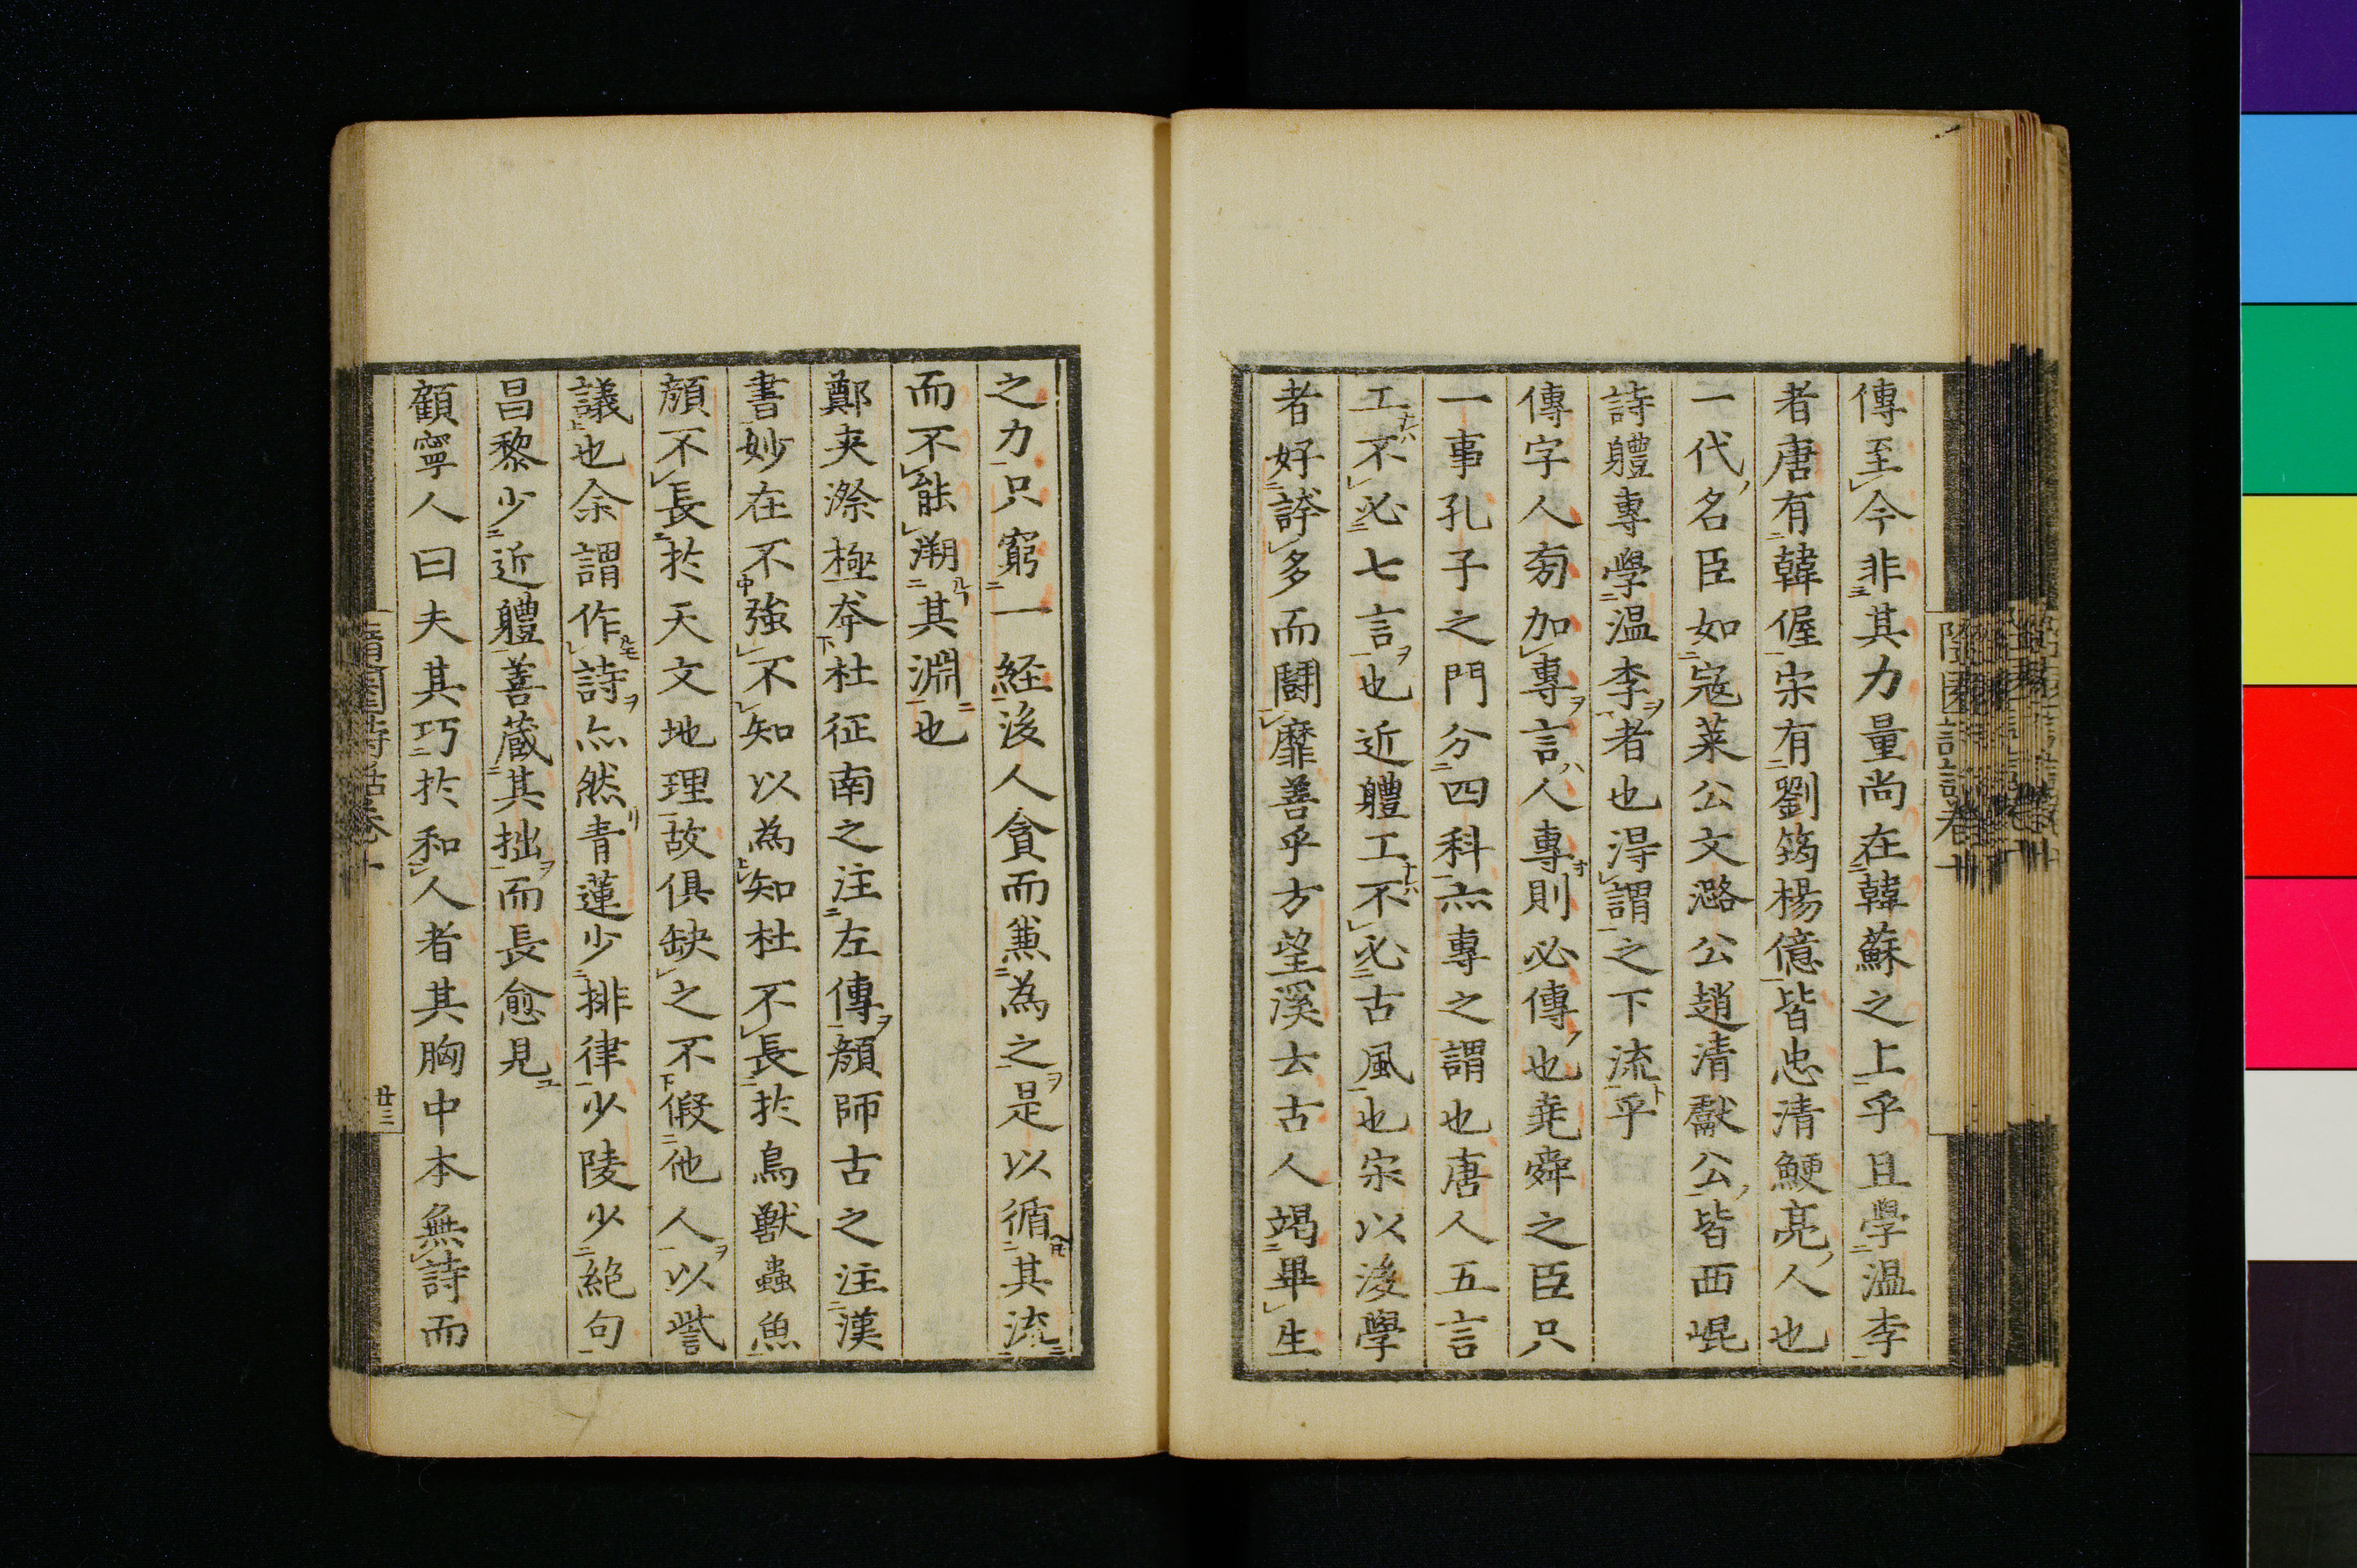 傳至今非其力量尚在韓蘇之上乎且學温李
者唐有韓偓宋有劉筠楊億皆忠清鯁亮人也
一代名臣如寇莱公文潞公趙清獻公皆西崐
詩軆專學温李者也淂謂之下流乎
傳字人旁加專言人專則必傳也堯舜之臣只
一事孔子之門分四科亦專之謂也唐人五言
工不必七言也近軆工不必古風也宋以後學
者好誇多而鬪靡善乎方望溪云古人竭畢生
之力只窮一経後人貪而兼為之是以循其流
而不能溯其淵也
鄭夾漈極夲杜征南之注左傳顔師古之注漢
書妙在不強不知以為知杜不長於鳥獸蟲魚
顔不長於天文地理故俱缺之不假他人以訾
議也余謂作詩亦然青蓮少排律少陵少絕句
昌黎少近軆善蔵其拙而長愈見
顧寧人曰夫其巧於和人者其胸中本無詩而
隨園詩話卷十
廿三